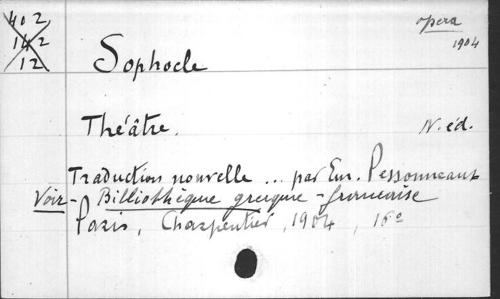 402
142
12
opera
1904
Sophocle
Théâtre. N. éd.
Traduction nouvelle ... par Em. Pessonneaux
Voir - Billiothèque grecque - francaise
Paris, Charpentier, 1904, 16°